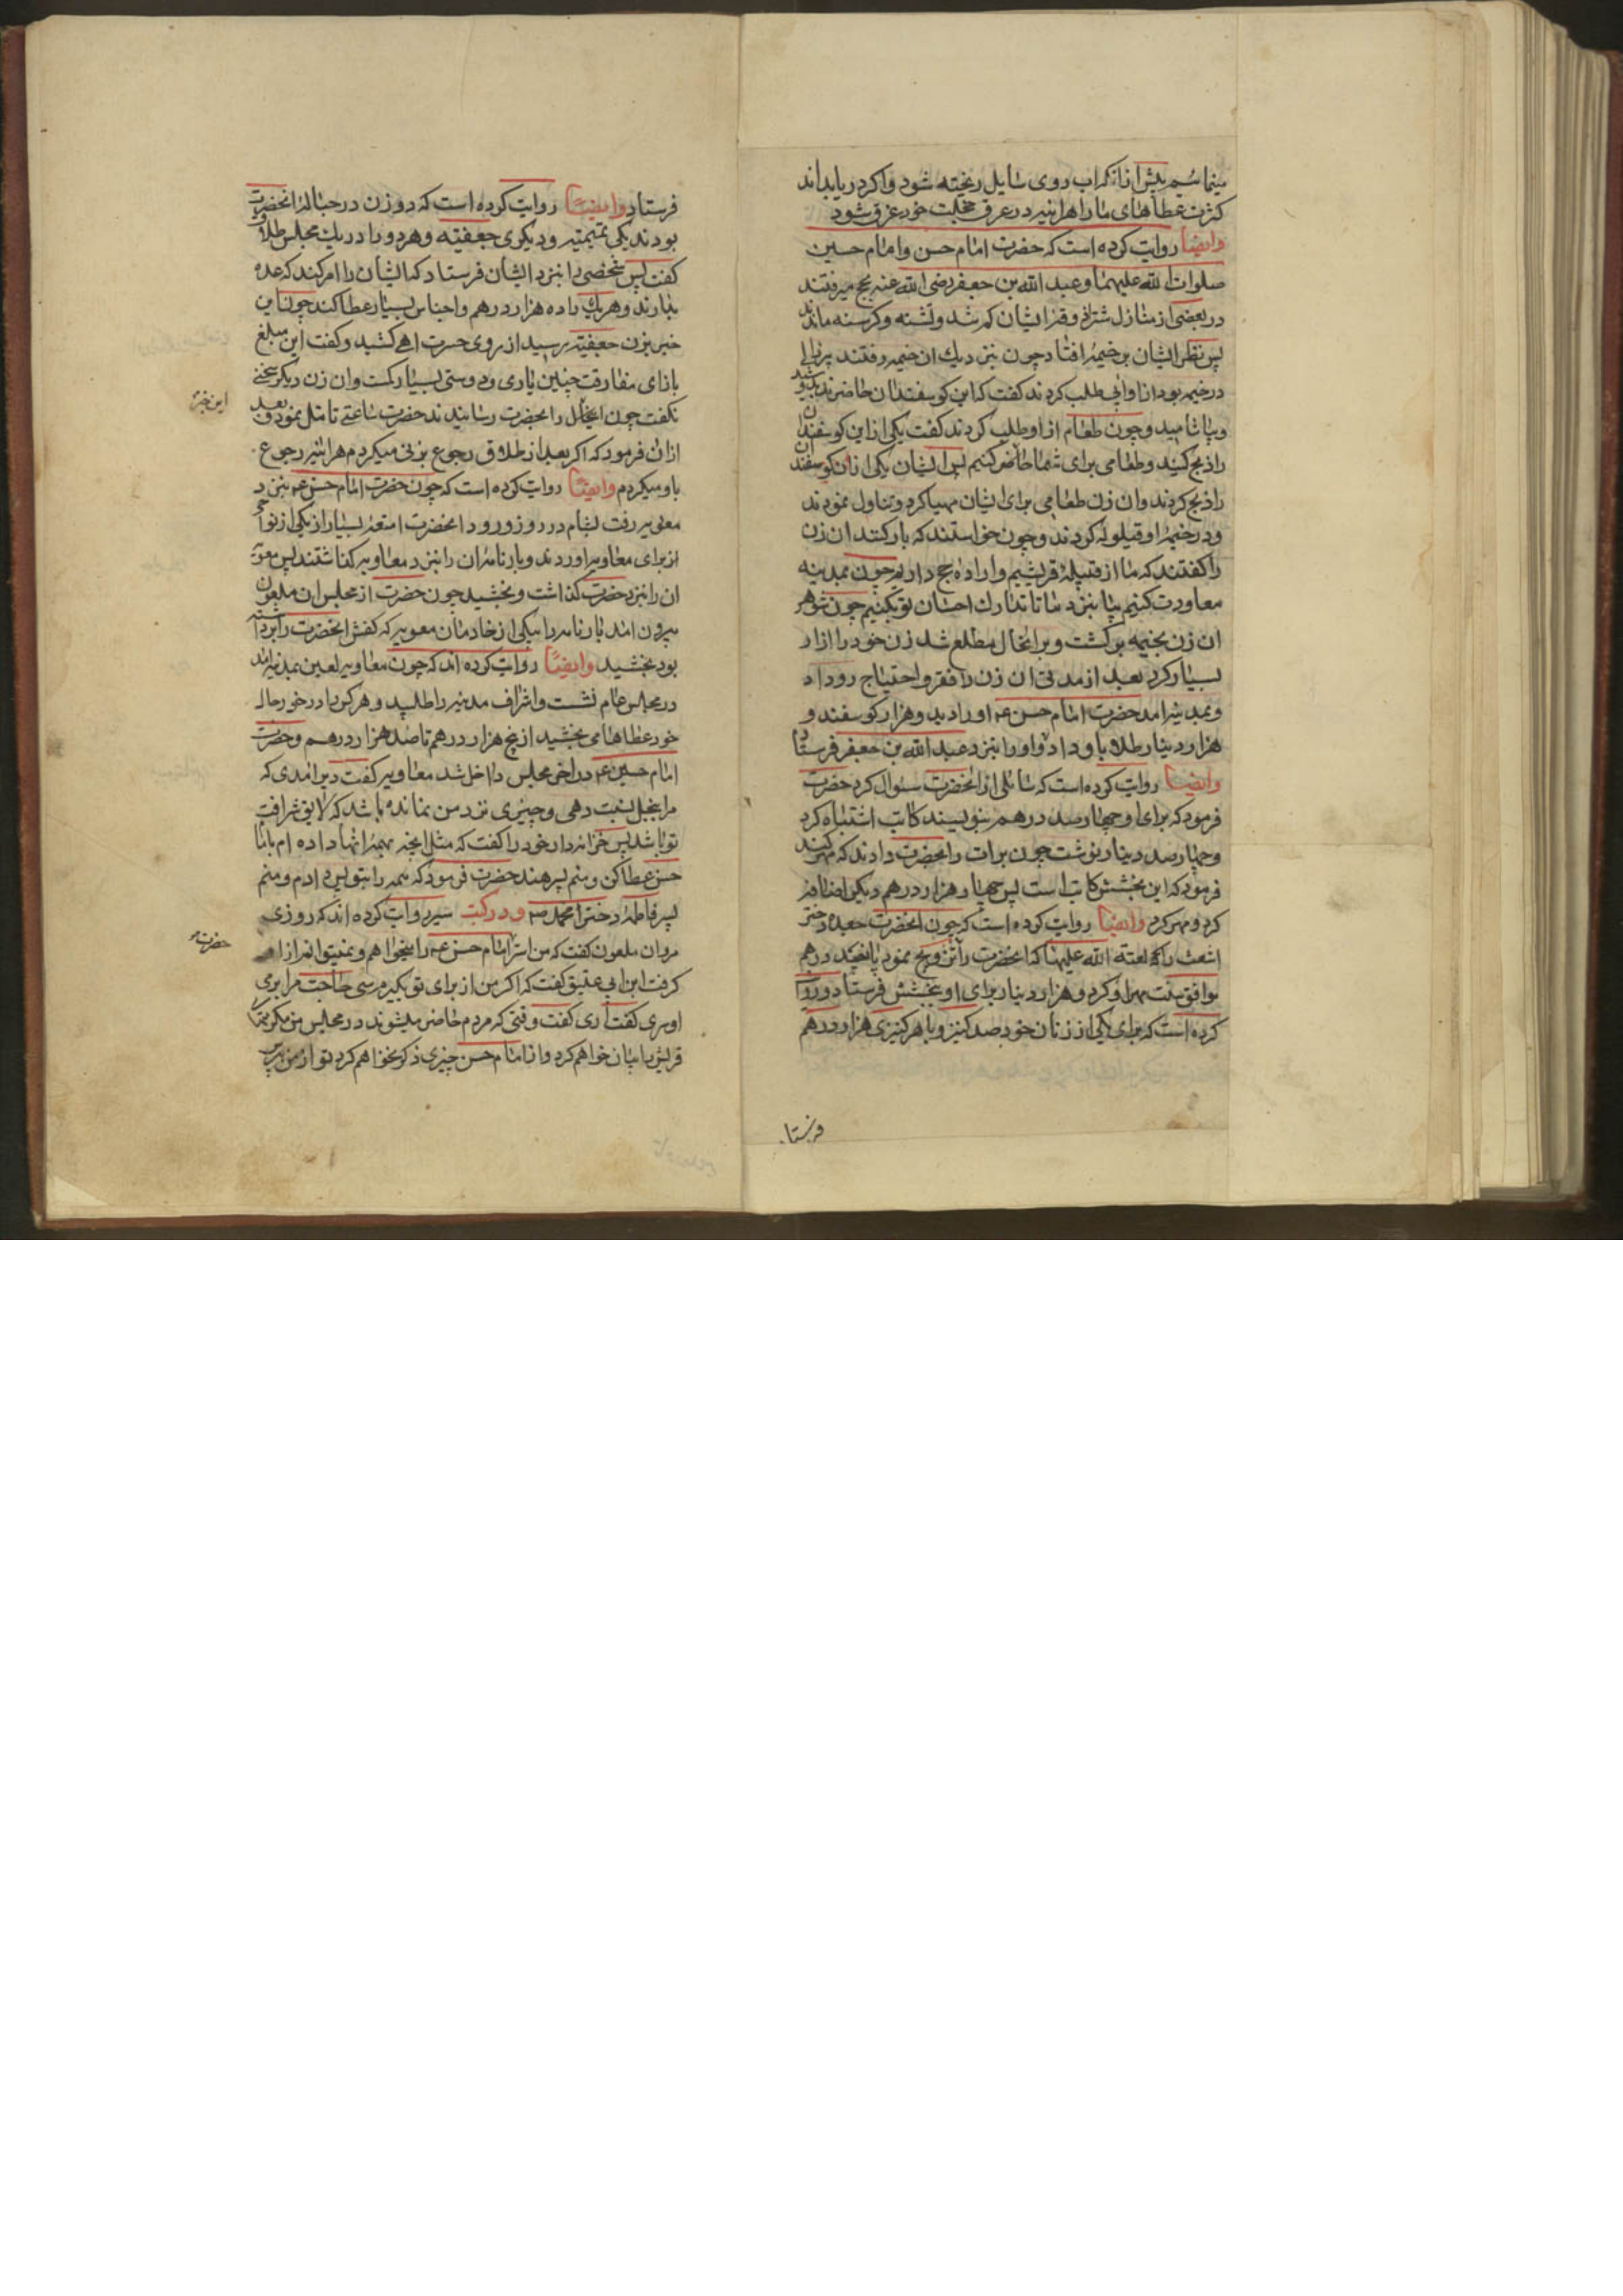 مینمائیم پیش از آنکه آب روی سایل ریخته شود و اکر دریا بداند
کثرت عطاهای ما را هراینه در عرق خجلت خود غرق شود
وایضا روایت کرده است که حضرت امام حسن و امام حسین
صلوات الله علیهما و عبد الله بن جعفر رضی الله عنه بحج میرفتند
در بعضی از منازل شتران ایشان کم شد و تشنه و کرسنه ماندند
پس نظر ایشان بر خیمهٔ افتاد چون بنزدیک ان خیمه رفتند پیرزالی
در خیمه بود از او آبی طلب کردند کفت که این کوسفندان حاضرند بدوشید
و بیاشامید و چون طعام از او طلب کردند کفت یکی از این کوسفندان
را ذبح کنید و طعامی برای شما حاضر کنیم پس ایشان یکی از ان کوسفندان
را ذبح کردند و ان زن طعامی برای ایشان مهیا کرد و تناول نمودند
و در خیمهٔ او قیلوله کردند و چون خواستند که بار کنند ان زن
را کفتند که ما از قبیلهٔ قریشیم و اراده حج داریم چون بمدینه
معاودت کنیم بیا بنزد ما تا تدارک احسان تو بکنیم چون شوهر
ان زن بخیمه برکشت و بر انحال مطلع شد زن خود را ازار
بسیار کرد بعد از مدتی ان زن را فقر و احتیاج روداد
و بمدینه امد حضرت امام حسن ع او را دید و هزار کوسفند و
هزار دینار طلا باو داد و او را بنزد عبد الله بن جعفر فرستاد
وایضا روایت کرده است که سائلی از انحضرت سئوال کرد حضرت
فرمود که برای او چهارصد درهم بنویسند کاتب اشتباه کرد
و چهارصد دینار نوشت چون برات را بحضرت دادند که مهر کنند
فرمود که این بخشش کاتب است پس چهار هزار درهم دیکر اضافه
کرد و مهر کرد وایضا روایت کرده است که چون انحضرت جعده دختر
اشعث را که لعنة الله علیهما که انحضرت را تزویج نمود پانصد درهم
موافق سنت مهر او کرد و هزار دینار برای او بخشش فرستاد و روایت
کرده است که برای یکی از زنان خود صد کنیز و با هر کنیزی هزار درهم
فرستا.
فرستاد وایضا روایت کرده است که دو زن در حبالهٔ انحضرت
بودند یکی تمیمیه و دیکری جعفیه و هر دو را در یک مجلس طلاق
کفت پس شخصی را بنزد ایشان فرستاد که ایشان را امر کند که عده
بدارند و هر یک را ده هزار درهم و اجناس بسیار عطا کند چون این
خبر بزن جعفیه رسید از روی حسرت اهی کشید و کفت این مبلغ
بازای مفارقت چنین یاری و دوستی بسیار کمست و ان زن دیکر سخنی
این خبر
نکفت چون انحال را بحضرت رسانیدند حضرت ساعتی تامل نمود و بعد
ازان فرمود که اکر بعد از طلاق رجوع بزنی میکردم هراینه رجوع
باو میکردم وایضا روایت کرده است که چون حضرت امام حسن ع بنزد
معویه رفت بشام در روز ورود انحضرت امتعهٔ بسیار از یکی از نواحی
از برای معاویه اوردند و بارنامه ان را بنزد معاویه کذاشتند پس معویه
ان را بنزد حضرت کذاشت و بخشید چون حضرت از مجلس ان ملعون
بیرون امد بارنامه را بیکی از خادمان معویه که کفش انحضرت را برداشته
بود بخشید وایضا روایت کرده اند که چون معاویه لعین بمدینه امد
در مجلس عام نشست و اشراف مدینه را طلبید و هر کس را در خور حال
خود عطاها می بخشید از پنج هزار درهم تا صد هزار درهم و حضرت
امام حسین ع در اخر مجلس داخل شد معاویه کفت دیر امدی که
مرا ببخل نسبت دهی و چیزی نزد من نمانده باشد که لایق شرافت
تو باشد پس خزانه دار خود را کفت که مثل انچه بهمهٔ انها داده ام باامام
حسن عطا کن و منم پسر هند حضرت فرمود که همه را بتو پس دادم و منم
پسر فاطمهٔ دختر محمد ص و در کتب سیر روایت کرده اند که روزی
مروان ملعون کفت که من استر امام حسن ع را میخواهم و نمیتوانم از او
حضرت
کرفت ابن ابی عتیق کفت که اکر من از برای تو بکیرم سی حاجت مرا برمی
اوری کفت اری کفت وقتی که مردم حاضر میشوند در مجلس من مکرمتهای
قریش را بیان خواهم کرد و از امام حسن چیزی ذکر نخواهم کرد تو از من بپرس